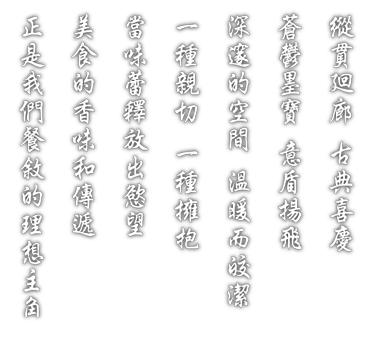 縱貫迴廊 古典喜慶
蒼鬱墨寶 意盾揚飛
深邃的空間 溫暖而皎潔
一種親切 一種擁抱
當味蕾釋放出慾望
美食的香味和傳遞
正是我們餐敘的理想主角